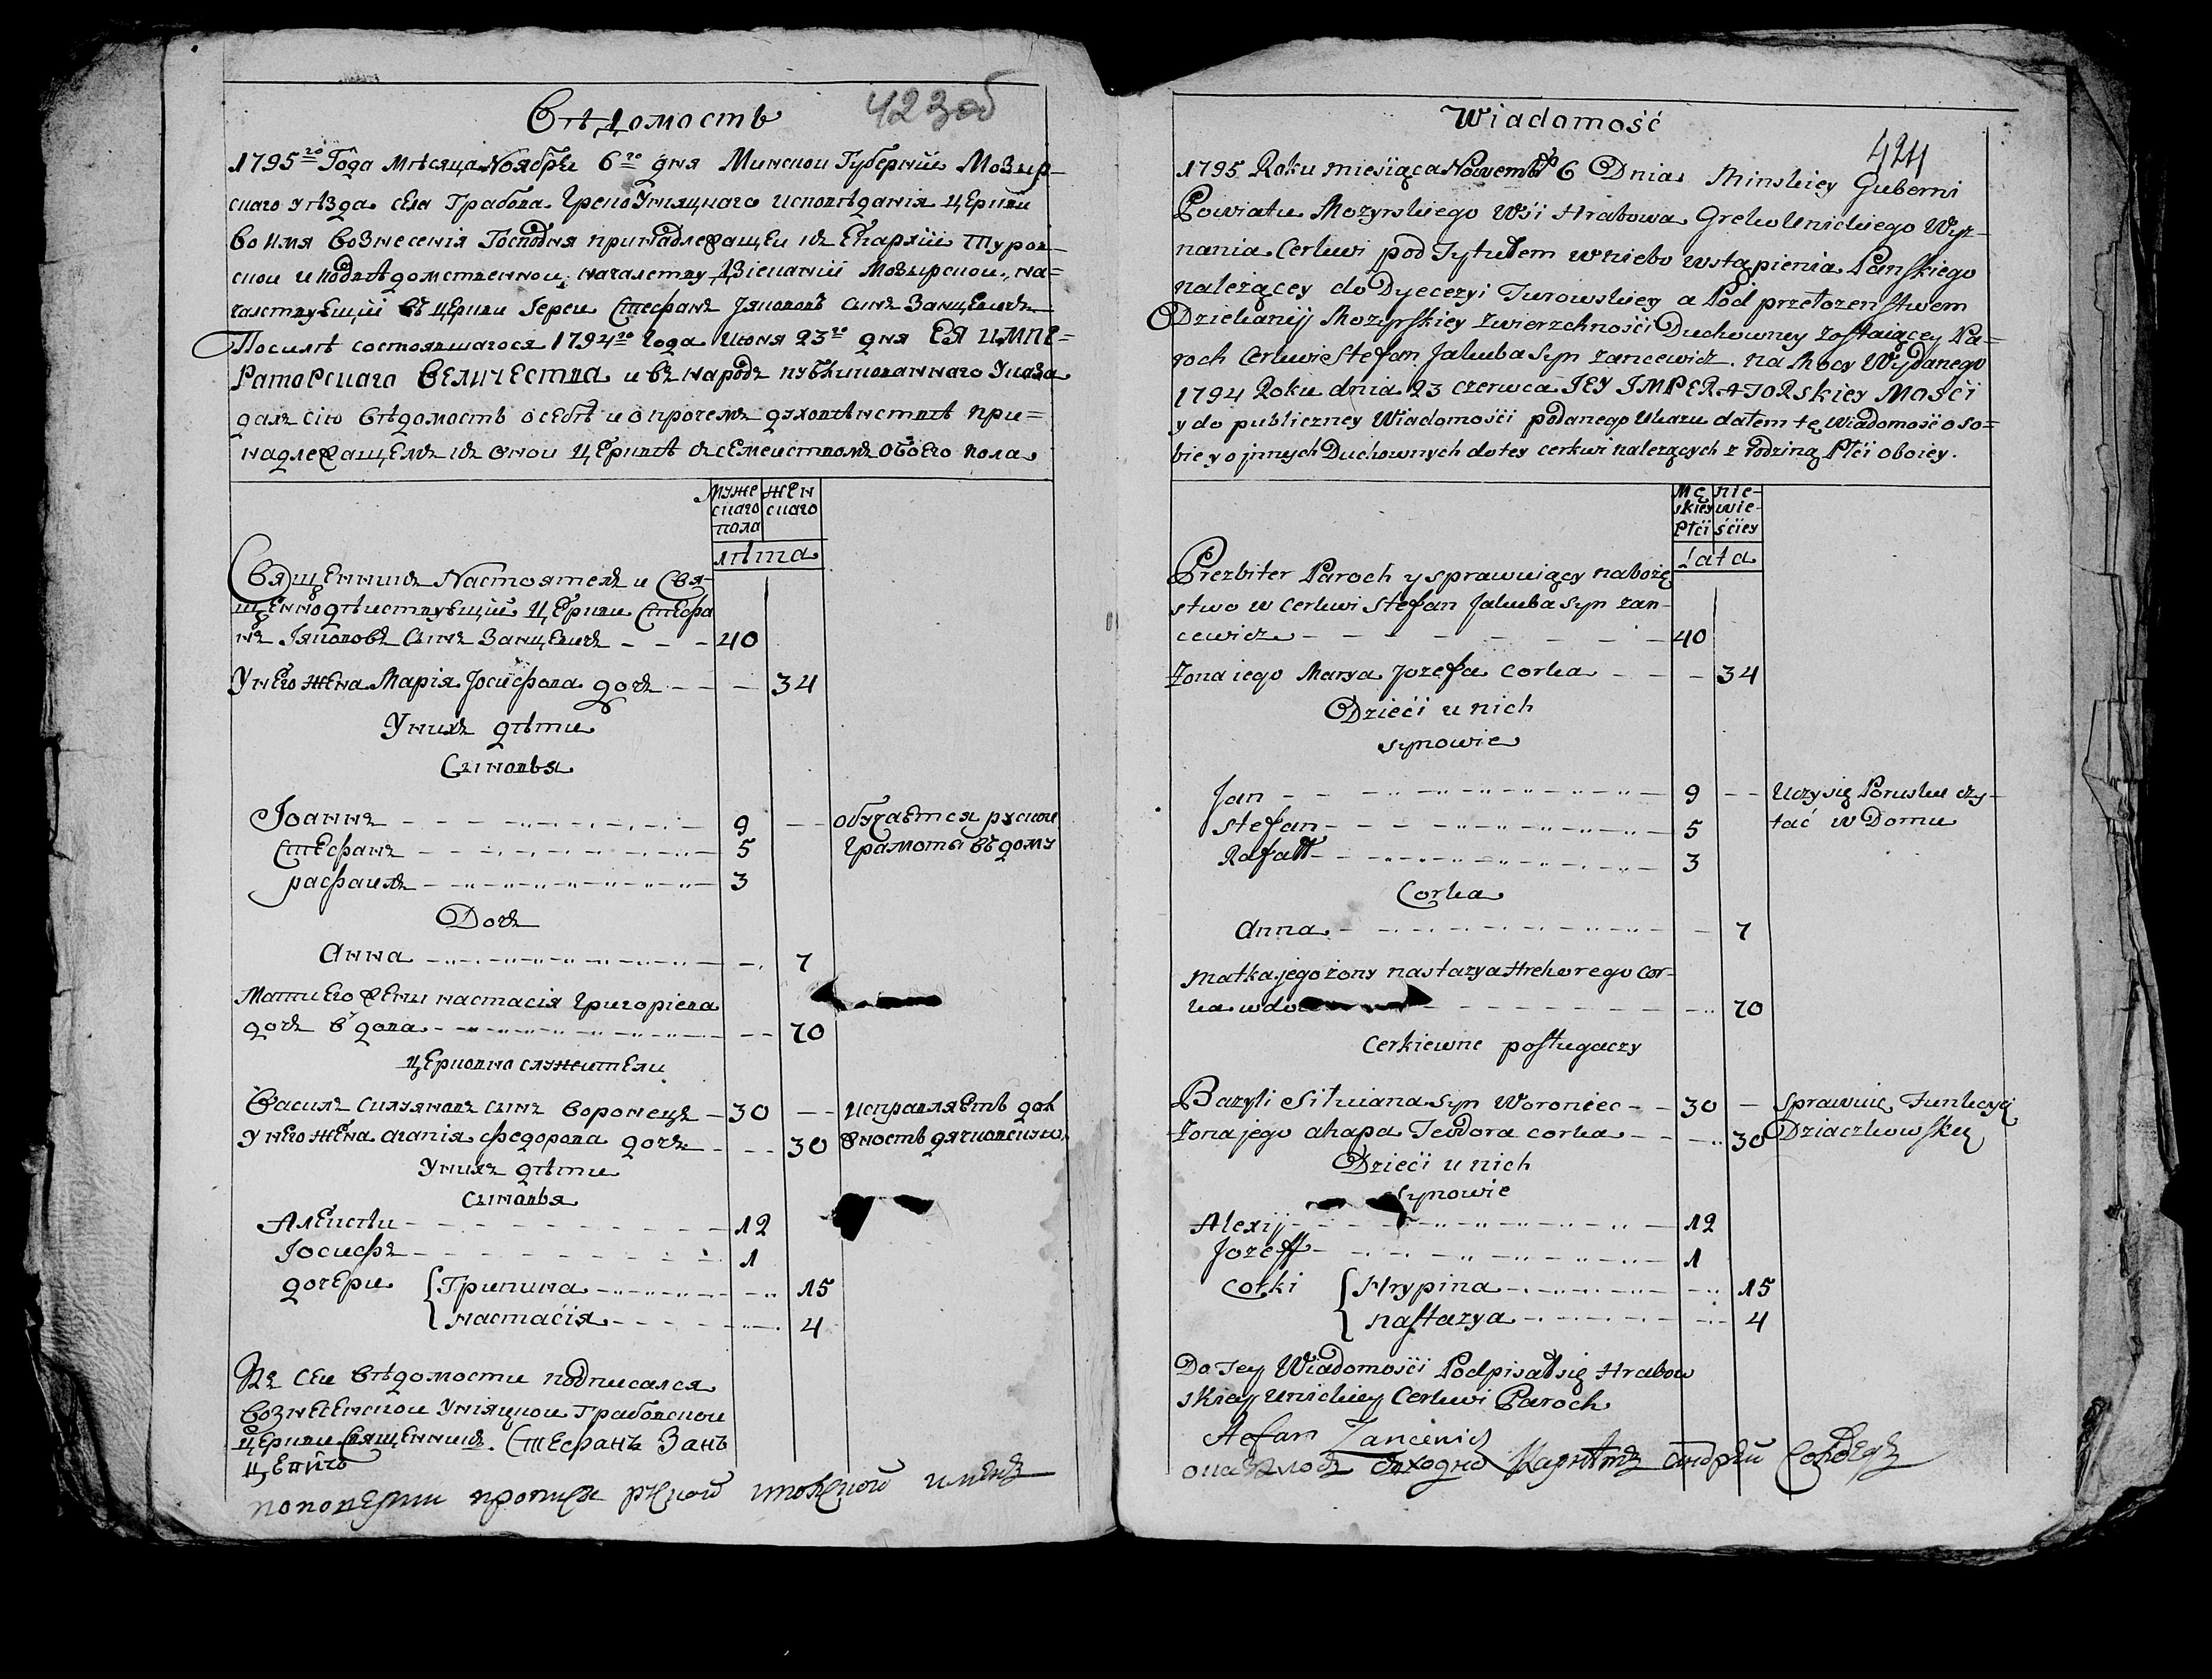 Вѣдомость
423об
1795го Года Мѣсяца Ноября 6го дня Минской Губерніи Мозыр-
скаго уѣзда села Грабова Греко Унияцкаго исповѣданія церкви
во имя Вознесенія Господня принадлежащей къ Епархіи Туров-
ской и подвѣдомственной начальству Дзіеканіи Мозырской, на-
чальствующій въ церкви Іереи Стефанъ Іяковлевъ сынъ Занцевичъ
Посилѣ состоявшагося 1794го года июня 23го дня ЕЯ ИМПЕ-
РАТОРСкаго ВЕЛИЧЕСТВА и въ народъ публикованнаго Указа
далъ сію вѣдомость о себѣ и о прочемъ духовенствѣ при-
надлежащемъ къ оной церквѣ съ семействомъ обоего пола
Муже жен
скаго скаго
пола
лѣта
Священникъ Настоятель и Свя-
щеннодѣйствующій церкви Стефа
нъ Іяковлевъ сынъ Занцевичъ - - - 40
У него жена Марія Іосифова дочь - - - 34
У нихъ дѣти
Сыновья
Іоаннъ 9 обучается руской
Стефанъ 5 грамоты въ дому
Рафаилъ 3
Дочь
Анна 7
Мати его жены настасія Григоріева
дочь вдова 70
церковно служители
Василь Силуяновъ сынъ Воронецъ - 30 - - исправляетъ дол
У него жена Агапія Федорова дочь - - - 30 жность дячковскую
У нихъ дѣти
сыновья
Алексѣй 12
Іосифъ 1
дочери { Грипина 15
настасія 4
Къ сей вѣдомости подписался
Вознесенской Уніяцкой Грабовской
Церкви Священникъ. Стефанъ Зан
цевичъ
Wiadomość
424
1795 Roku miesiąca Novembr 6 Dnia Minskiey Guberni
Powiatu Mozyrskiego Wśi Hrabowa Greko Unickiego Wyz-
nania Cerkwi pod Tytułem w niebo wstąpienia Pańskiego
należącey do Dyecezyi Turowskiey a Pod przełożeństwem
Dziekanij Mozyrskiey zwierzchnośći Duchowney zostaiącey Pa-
roch Cerkwie Stefan Jakuba Syn Zancewicz na Mocy Wydanego
1794 Roku dnia 23 czerwca JEY IMPERATORskiey Mośći
y do publiczney Wiadomośći podanego Ukazu dałem tę wiadomość o so-
bie y o jnnych Duchownych do tey cerkwi należących z rodziną Płći oboiey.
Mę nie-
skiey wie-
Płći śćiey
lata
Prezbiter Paroch y sprawuiący naboże
stwo w cerkwi Stefan Jakuba syn zan-
cewicz - - - 40
Żona iego Marya Jozefa corka - - - 34
Dzieći u nich
synowie
Jan 9 - - Uczy się Porusku czy-
Stefan 5 tać w Domu
Rafałł 3
Corka
Anna 7
Matka jego żony nastazya Hrehorego cor-
ka wdo 70
Cerkiewne posługaczy
Bazyli Siluiana syn Woroniec - - 30 - sprawuie Funkcyą
Żona jego ahapa Teodora corka - - - 30 Dziaczkowską
Dzieći u nich
synowie
Alexij 12
Jozeff 1
Corki { Hrypina 15
Nastazya 4
Do Tey Wiadomośći Podpisał się Hrabow
skiey Unickiey Cerkwi Paroch
Stefan Zancewicz